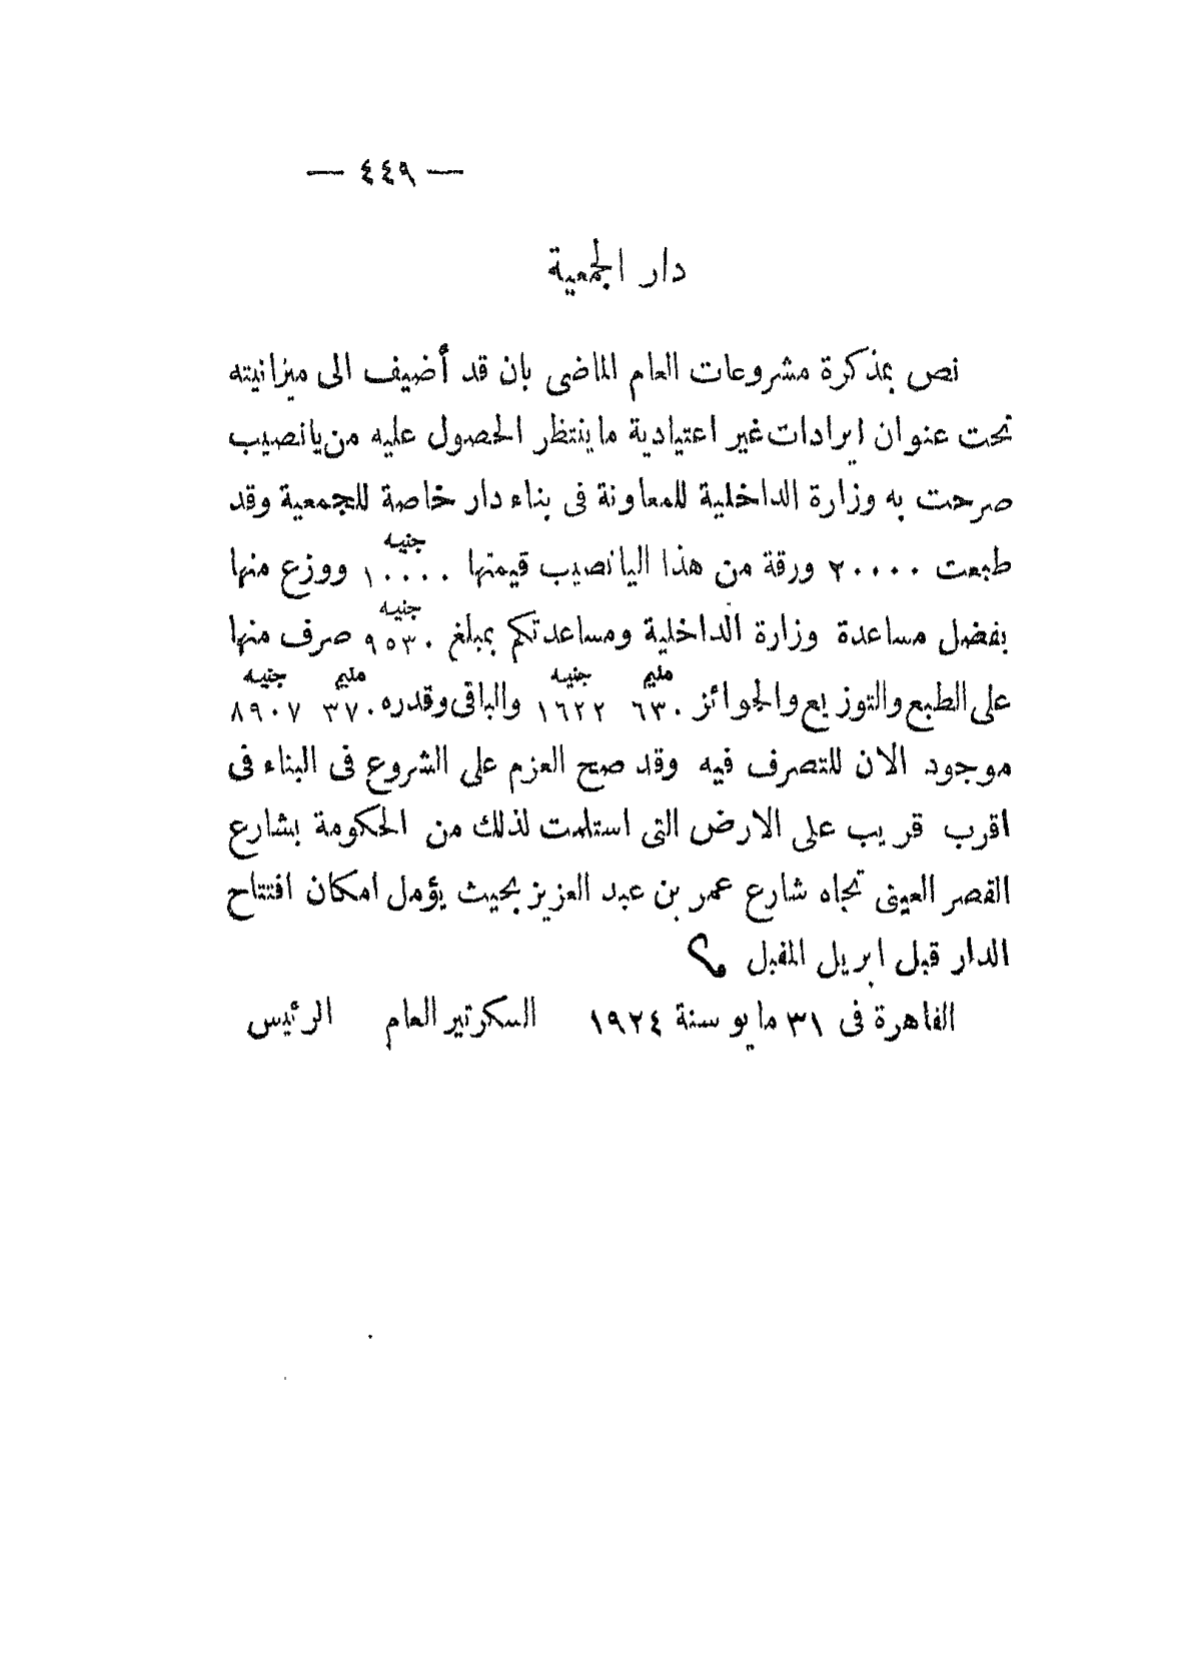 — ٤٤٩ —
دار الجمعية
نص بمذكرة مشروعات العام الماضى بان قد أضيف الى ميزانيته
تحت عنوان ايرادات غير اعتيادية ما ينتظر الحصول عليه من يانصيب
صرحت به وزارة الداخلية للمعاونة فى بناء دار خاصة للجمعية وقد
جنيه
طبعت ٢٠٠٠٠ ورقة من هذا اليانصيب قيمتها ١٠٠٠٠ ووزع منها
جنيه
بفضل مساعدة وزارة الداخلية ومساعدتكم بمبلغ ٩٥٣٠ صرف منها
مليم جنيه مليم جنيه
على الطبع والتوزيع والجوائز ٦٣٠ ١٦٢٢ والباقى وقدره ٣٧٠ ٨٩٠٧
موجود الان للتصرف فيه وقد صح العزم على الشروع فى البناء فى
اقرب قريب على الارض التى استلمت لذلك من الحكومة بشارع
القصر العينى تجاه شارع عمر بن عبد العزيز بحيث يؤمل امكان افتتاح
الدار قبل ابريل المقبل
القاهرة فى ٣١ مايو سنة ١٩٢٤ السكرتير العام الرئيس